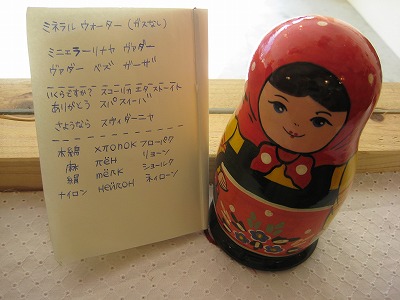 ミネラル ウォーター (ガスなし)
ミニェラーリナヤ ヴァダー
ヴァダー ベズ ガーザ
いくらですか? スコーリカ エタ ストーイト
ありがとう スパスィーバ
さようなら スヴィダーニャ
木綿 хлопок フローパク
麻 лён リョーン
絹 шёлк ショールク
ナイロン нейлон ネィローン